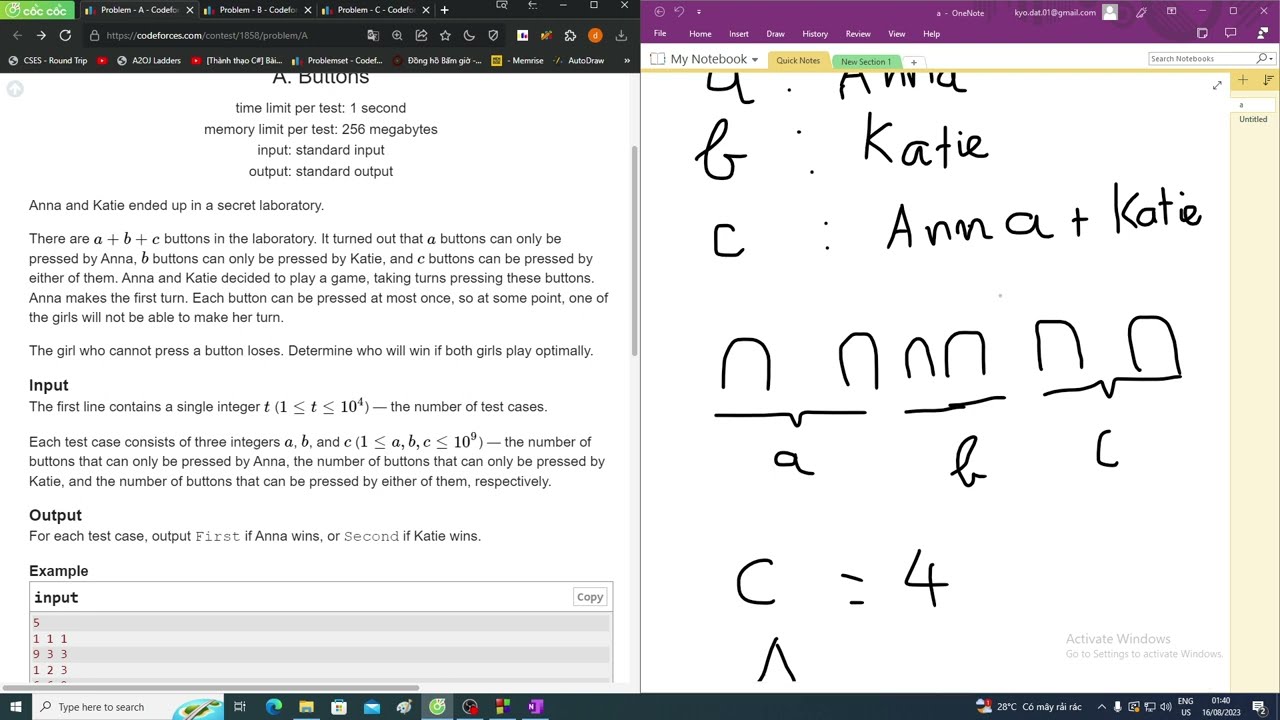 CỐC CỐC
Problem - A - Codefor
Problem - B - Codefor
Problem - C - Codefor
https://codeforces.com/contest/1858/problem/A
CSES - Round Trip
A2OJ Ladders
[Thành thạo C#] Bài...
Problemset - Codef...
Đồng hồ Bấm giờ -...
- Memrise
AutoDraw
A. Buttons
time limit per test: 1 second
memory limit per test: 256 megabytes
input: standard input
output: standard output
Anna and Katie ended up in a secret laboratory.
There are a + b + c buttons in the laboratory. It turned out that a buttons can only be
pressed by Anna, b buttons can only be pressed by Katie, and c buttons can be pressed by
either of them. Anna and Katie decided to play a game, taking turns pressing these buttons.
Anna makes the first turn. Each button can be pressed at most once, so at some point, one of
the girls will not be able to make her turn.
The girl who cannot press a button loses. Determine who will win if both girls play optimally.
Input
The first line contains a single integer t (1 ≤ t ≤ 10^4) — the number of test cases.
Each test case consists of three integers a, b, and c (1 ≤ a, b, c ≤ 10^9) — the number of
buttons that can only be pressed by Anna, the number of buttons that can only be pressed by
Katie, and the number of buttons that can be pressed by either of them, respectively.
Output
For each test case, output First if Anna wins, or Second if Katie wins.
Example
input
Copy
5
1 1 1
9 3 3
1 2 3
a - OneNote
kyo.dat.01@gmail.com
File Home Insert Draw History Review View Help
My Notebook
Quick Notes
New Section 1
Search Notebooks
a
Untitled
a : Anna
b : Katie
c : Anna + Katie
a b c
c = 4
A
Activate Windows
Go to Settings to activate Windows.
Type here to search
28°C Có mây rải rác
ENG
01:40
16/08/2023
2